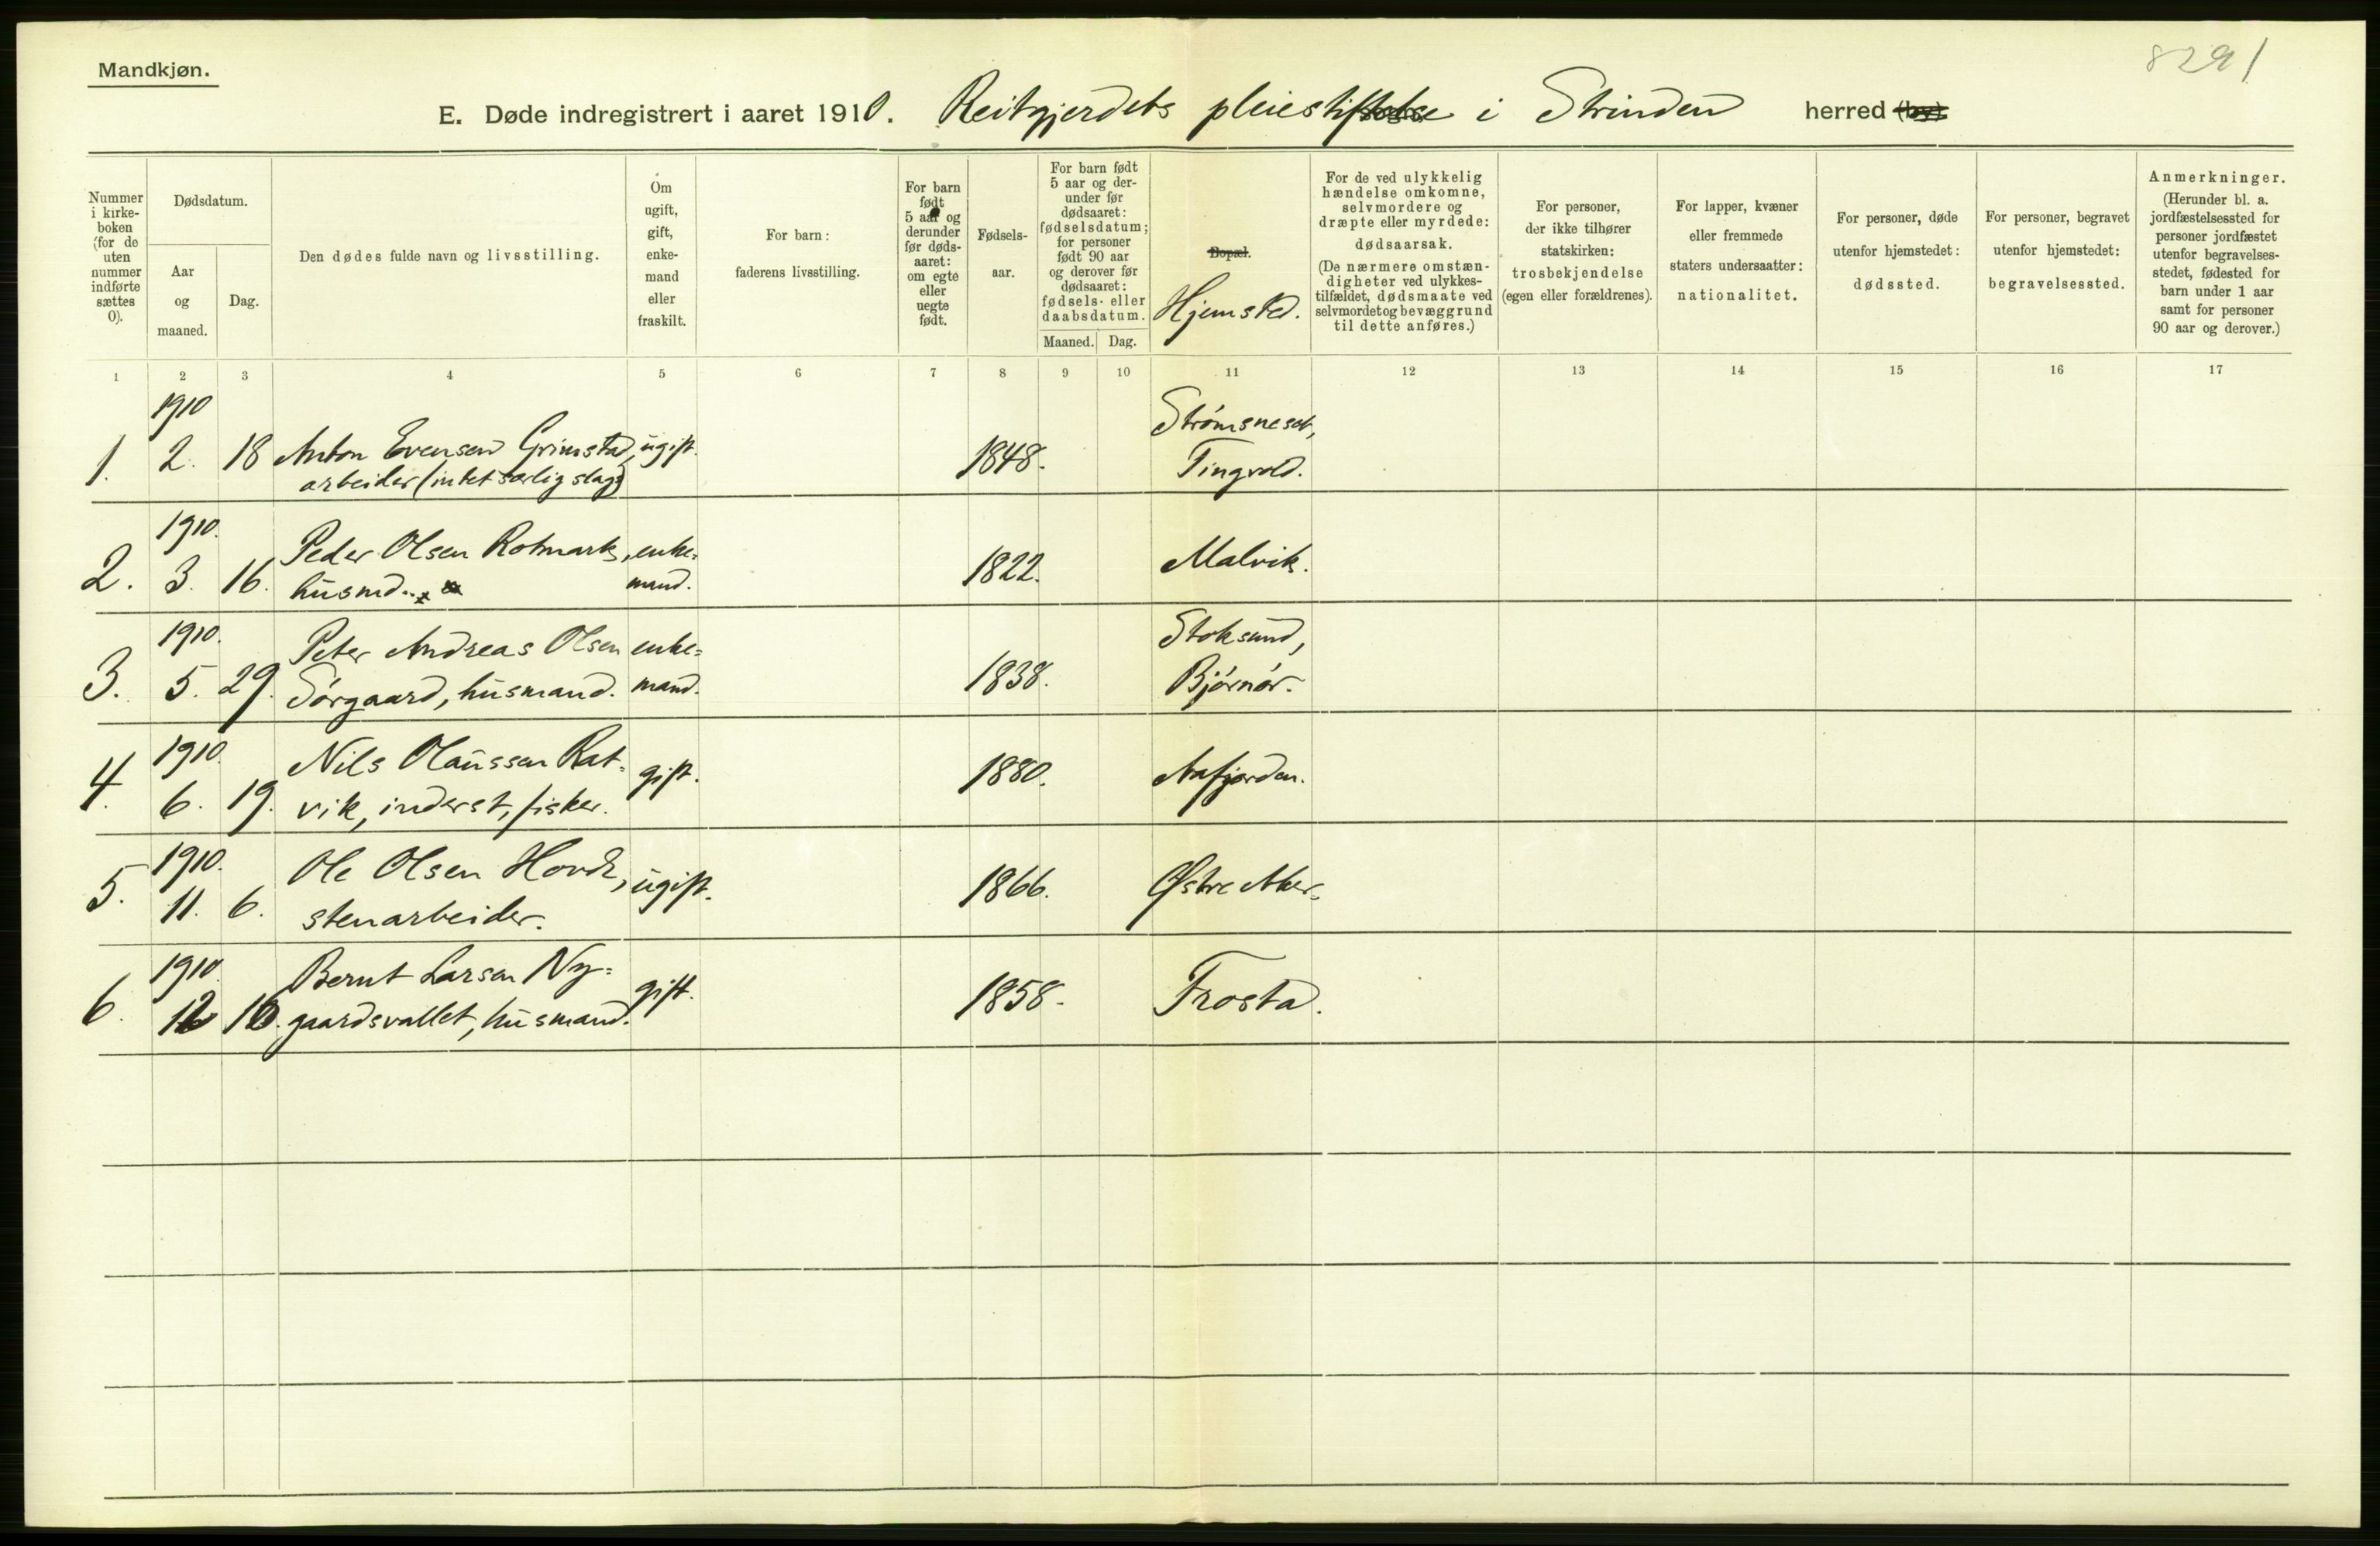 Mandkjøn.
8291
E. Døde indregistrert i aaret 1910. Reitgjerdets pleiestiftelse i Strinden herred (by).
Nummer i kirke-boken (for de uten nummer indførte sættes 0).
Dødsdatum.
Aar og maaned.
Dag.
Den dødes fulde navn og livsstilling.
Om ugift, gift, enke-mand eller fraskilt.
For barn: faderens livsstilling.
For barn født 5 aar og derunder før døds-aaret: om egte eller uegte født.
Fødsels-aar.
For barn født 5 aar og der-under før dødsaaret: fødselsdatum; for personer født 90 aar og derover før dødsaaret: fødsels- eller daabsdatum.
Maaned. Dag.
Bopæl.
Hjemsted.
For de ved ulykkelig hændelse omkomne, selvmordere og dræpte eller myrdede: dødsaarsak. (De nærmere omstæn-digheter ved ulykkes-tilfældet, dødsmaate ved selvmordet og bevæggrund til dette anføres.)
For personer, der ikke tilhører statskirken: trosbekjendelse (egen eller forældrenes).
For lapper, kvæner eller fremmede staters undersaatter: nationalitet.
For personer, døde utenfor hjemstedet: dødssted.
For personer, begravet utenfor hjemstedet: begravelsessted.
Anmerkninger. (Herunder bl. a. jordfæstelsessted for personer jordfæstet utenfor begravelses-stedet, fødested for barn under 1 aar samt for personer 90 aar og derover.)
1 2 3 4 5 6 7 8 9 10 11 12 13 14 15 16 17
1910 Strømsneset,
1. 2. 18 Anton Evensen Grimstad, ugift. 1848. Tingvold.
arbeider (intet særlig slags)
1910. Peder Olsen Rotmark, enke=
2. 3. 16. husmd.. mand. 1822. Malvik.
1910. Peter Andreas Olsen enke= Stoksund,
3. 5. 29. Sørgaard, husmand. mand. 1838. Bjørnør.
1910. Nils Olaussen Rat=
4. 6. 19. vik, inderst, fisker. gift. 1880. Aafjorden.
1910. Ole Olsen Hovde, ugift. 1866. Østre Aker.
5. 11. 6. stenarbeider.
1910. Bernt Larsen Ny=
6. 12 10. gaardsvallet, husmand. gift. 1858. Frosta.